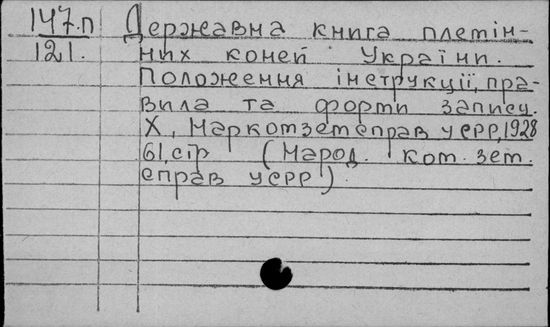 147.п Державна книга племін-
121. них коней України.
Положення інструкції, пра-
вила та форми запису.
Х, Наркомземсправ УСРР, 1928
61, стр (Народ. ком. зем.
справ УСРР).